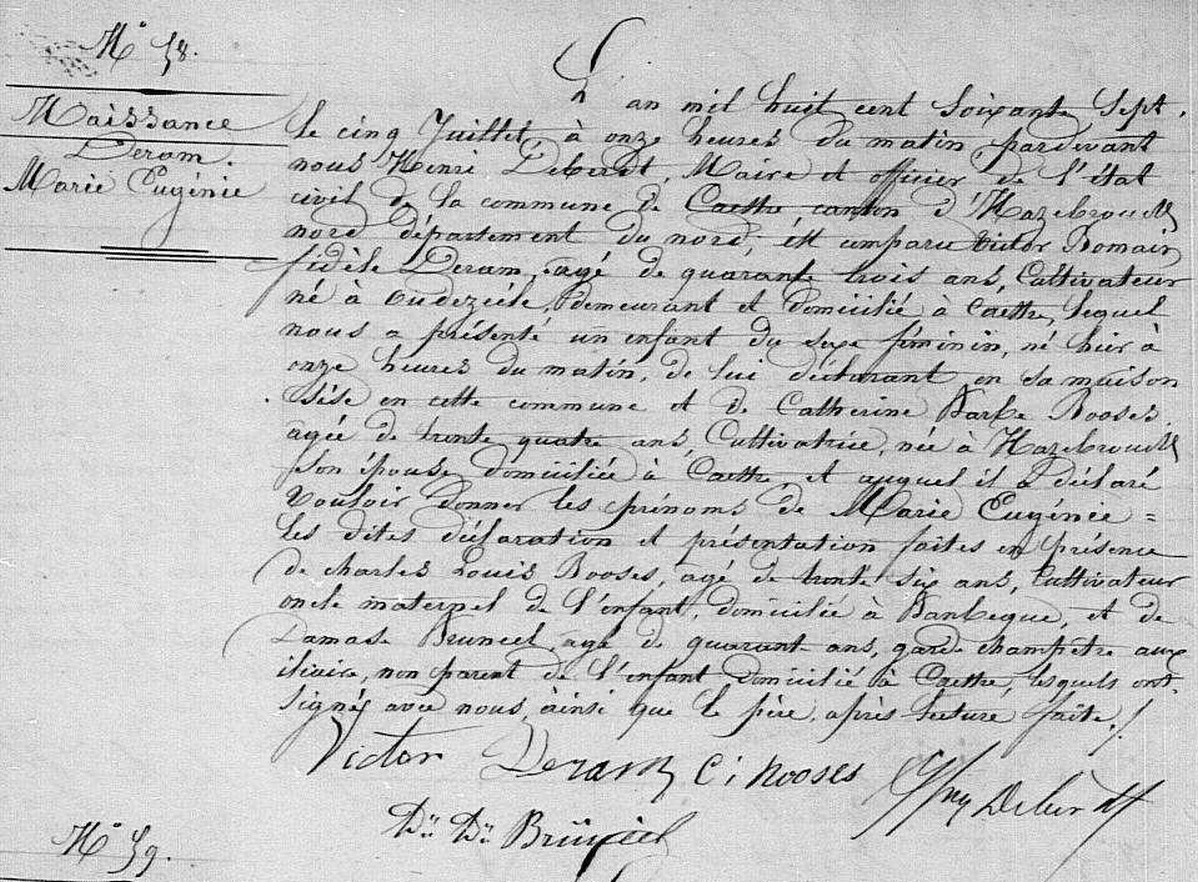 N° 58.
Naissance
Deram.
Marie Eugénie
L'an mil huit cent soixante sept,
le cinq Juillet, à onze heures du matin pardevant
nous Henri Maire et officier de l'état
civil de la commune de Caestre, canton d'Hazebrouck
nord département du nord, est comparu Victor Romain
fidèle Deram, agé de quarante trois ans, Cultivateur
né à Oudezeéle, demeurant et domicilié à Caestre, lequel
nous a présenté un enfant du sexe féminin, né hier à
onze heures du matin, de lui déclarant en sa maison
sise en cette commune et de Catherine Barbe Booses
agée de trente quatre ans, Cultivatrice, née à Hazebrouck
son épouse domiciliée à Caestre et auquel il a déclaré
vouloir donner les prénoms de Marie Eugénie =
Les dites déclaration et présentation faites en présence
de charles Louis Booses, agé de trente six ans, Cultivateur
oncle maternel de l'enfant, domicilié à Bambeque, et de
Damase Bruneel, agé de quarante ans, garde champêtre aux
iliaire, non parent de l'enfant domicilié à Caestre, lesquels ont
signé avec nous, ainsi que le père, après lecture faite./.
Victor Deram C: Booses
Bruneel
N° 59.